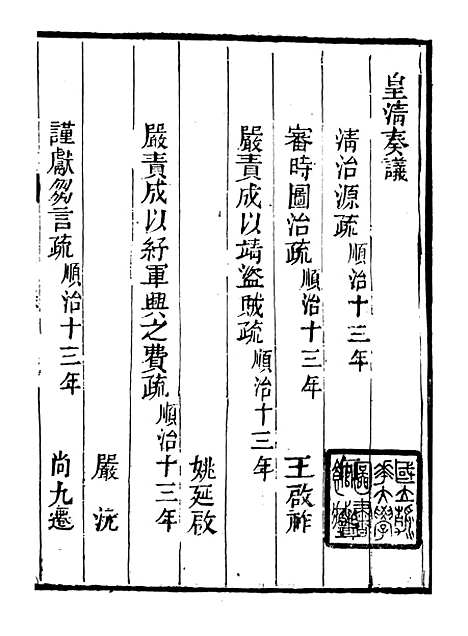 皇清奏議
清治源疏 順治十三年
審時圖治疏 順治十三年 王啟祚
嚴責成以靖盜賊疏 順治十三年
姚延啟
嚴責成以紓軍興之費疏 順治十三年
嚴沆
謹獻芻言疏 順治十三年 尚九遷